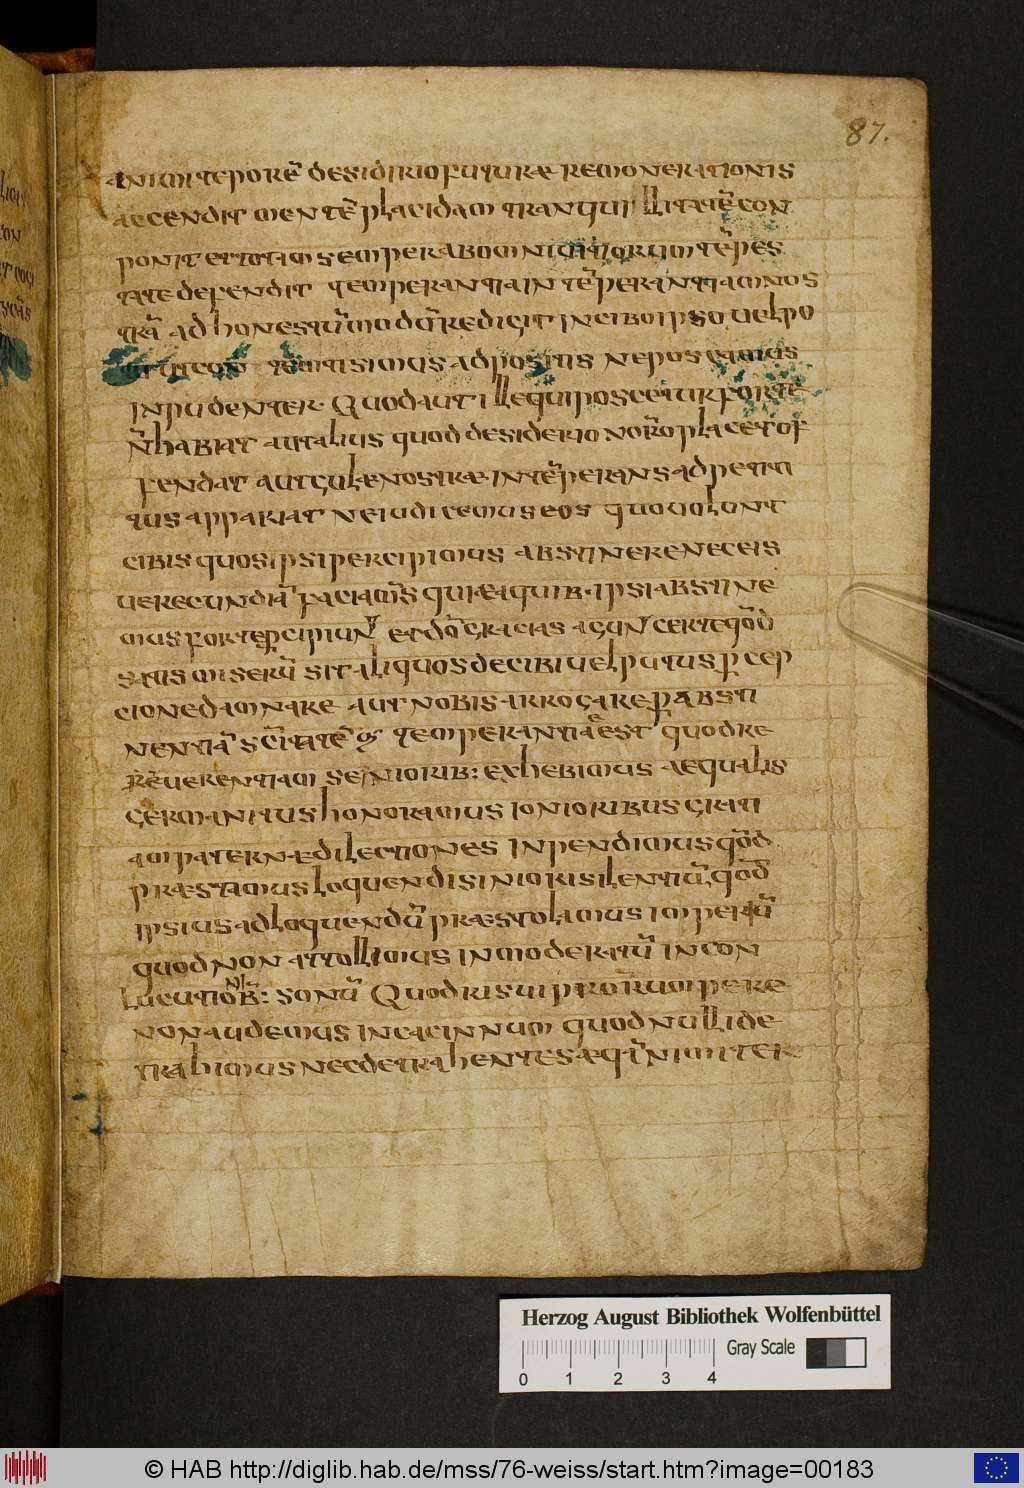 87.
animi tepore᷒ desidirio futuræ remonerationis
accendit mente᷒ placidam tranquillitate᷒ con
ponit et totam semper ab omni tempes
tate defendit temperantia inte᷒perantiam nos
tra᷒ ad honestu᷒ modu᷒ redigit in cibo ipso uel po
simus adpositis ne poscamus
inpudenter quod aut ille qui poscetur forte
n᷒ habiat aut alius quod desiderio nor̄o placet of
fendat aut gulæ nostræ inte᷒perans adpetit
tus appariat ne iudicemus eos quo uolunt
cibis quos ipsi percipimus abstinere nec eis
uerecundia᷒ facia᷒s qui ea quib· ipsi abstine
mus forte percipiunt
satis miseru᷒ sit aliquos de cibi uel putus p cep
cione damnare aut nobis arrogare p absti
nentia᷒ sci᷒tate᷒ temperantiæ est quod re
reuerentiam seniorub: exhebimus æqualis
germanitus honoramus ionioribus grati
am paternæ dilectiones inpendimus qo᷒d
præstamus loquendi siniorus silentiu᷒ qo᷒d
ipsius adloquendu᷒ præstolamus imperiu᷒
quod non attollimus inmoderatu᷒ in con
lucutionib: sonu᷒ quod risu ipro᷒rumpere
non audemus in cacinnum quod nulli de
trahimus nec detrahentes æq᷒nimiter
Herzog August Bibliothek Wolfenbüttel
Gray Scale
0 1 2 3 4
© HAB http://diglib.hab.de/mss/76-weiss/start.htm?image=00183